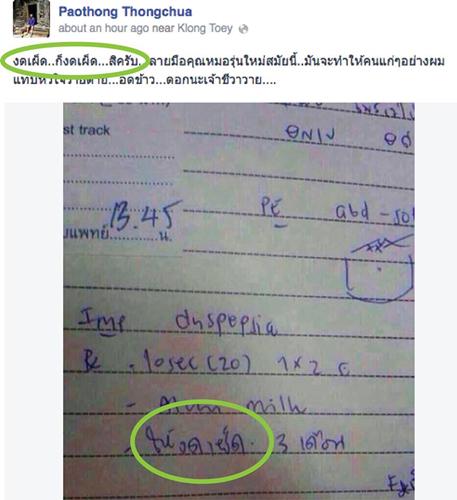 Paothong Thongchua
about an hour ago near Klong Toey
งดเผ็ด..ก็งดเผ็ด...สิครับ. ลายมือคุณหมอรุ่นใหม่สมัยนี้..มันจะทำให้คนแก่ๆอย่างผม
แทบหัวใจวายตาย...อดข้าว...ดอกนะเจ้าชีวาวาย....
st track
PE abd - so
13.45
บแพทย์ น.
Imp dyspepsia
Rx . losec (20) 1x2 c
- Alum milk
- ให้งดเผ็ด 3 เดือน